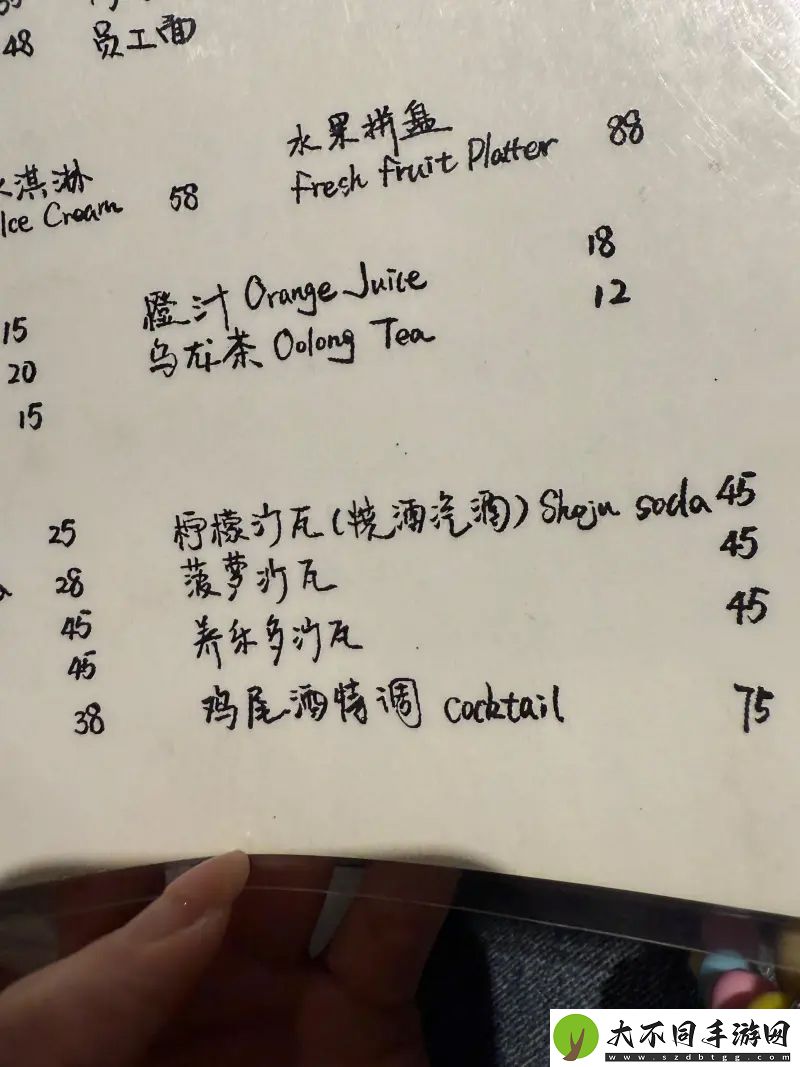 48 员工面
水果拼盘 88
Fresh Fruit Platter
淇淋 58
Ice Cream
18
橙汁 Orange Juice
12
15 乌龙茶 Oolong Tea
20
15
25 柠檬沙瓦(烧酒汽酒) Shoju soda 45
28 菠萝沙瓦 45
45 养乐多沙瓦 45
45
38 鸡尾酒特调 cocktail 75
大不同手游网
www.szdbtgg.com